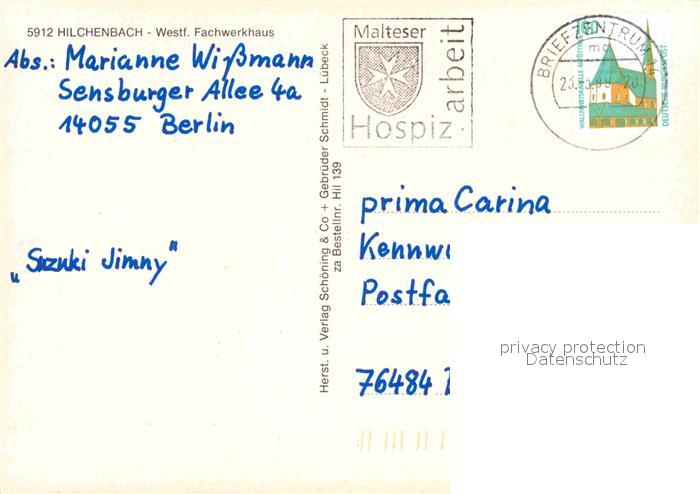 5912 HILCHENBACH - Westf. Fachwerkhaus
Abs.: Marianne Wißmann
Sensburger Allee 4a
14055 Berlin
„Suzuki Jimny"
Herst. u. Verlag Schöning & Co + Gebrüder Schmidt - Lübeck
za Bestellnr. Hil 139
Malteser
Hospiz
arbeit
BRIEFZENTRUM
mc
100
WALLFAHRTSKAPELLE ALTÖTTING
DEUTSCHE BUNDESPOST
prima Carina
Kennw
Postfa
76484
privacy protection
Datenschutz